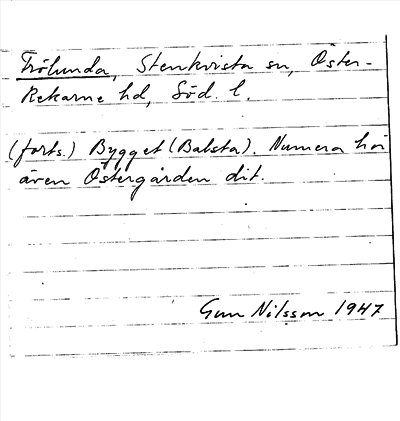 Frölunda, Stenkvista sn, Öster-
Rekarne hd, Söd. l.
(forts.) Bygget (Balsta). Numera hör
även Östergården dit.
Gun Nilsson 1947